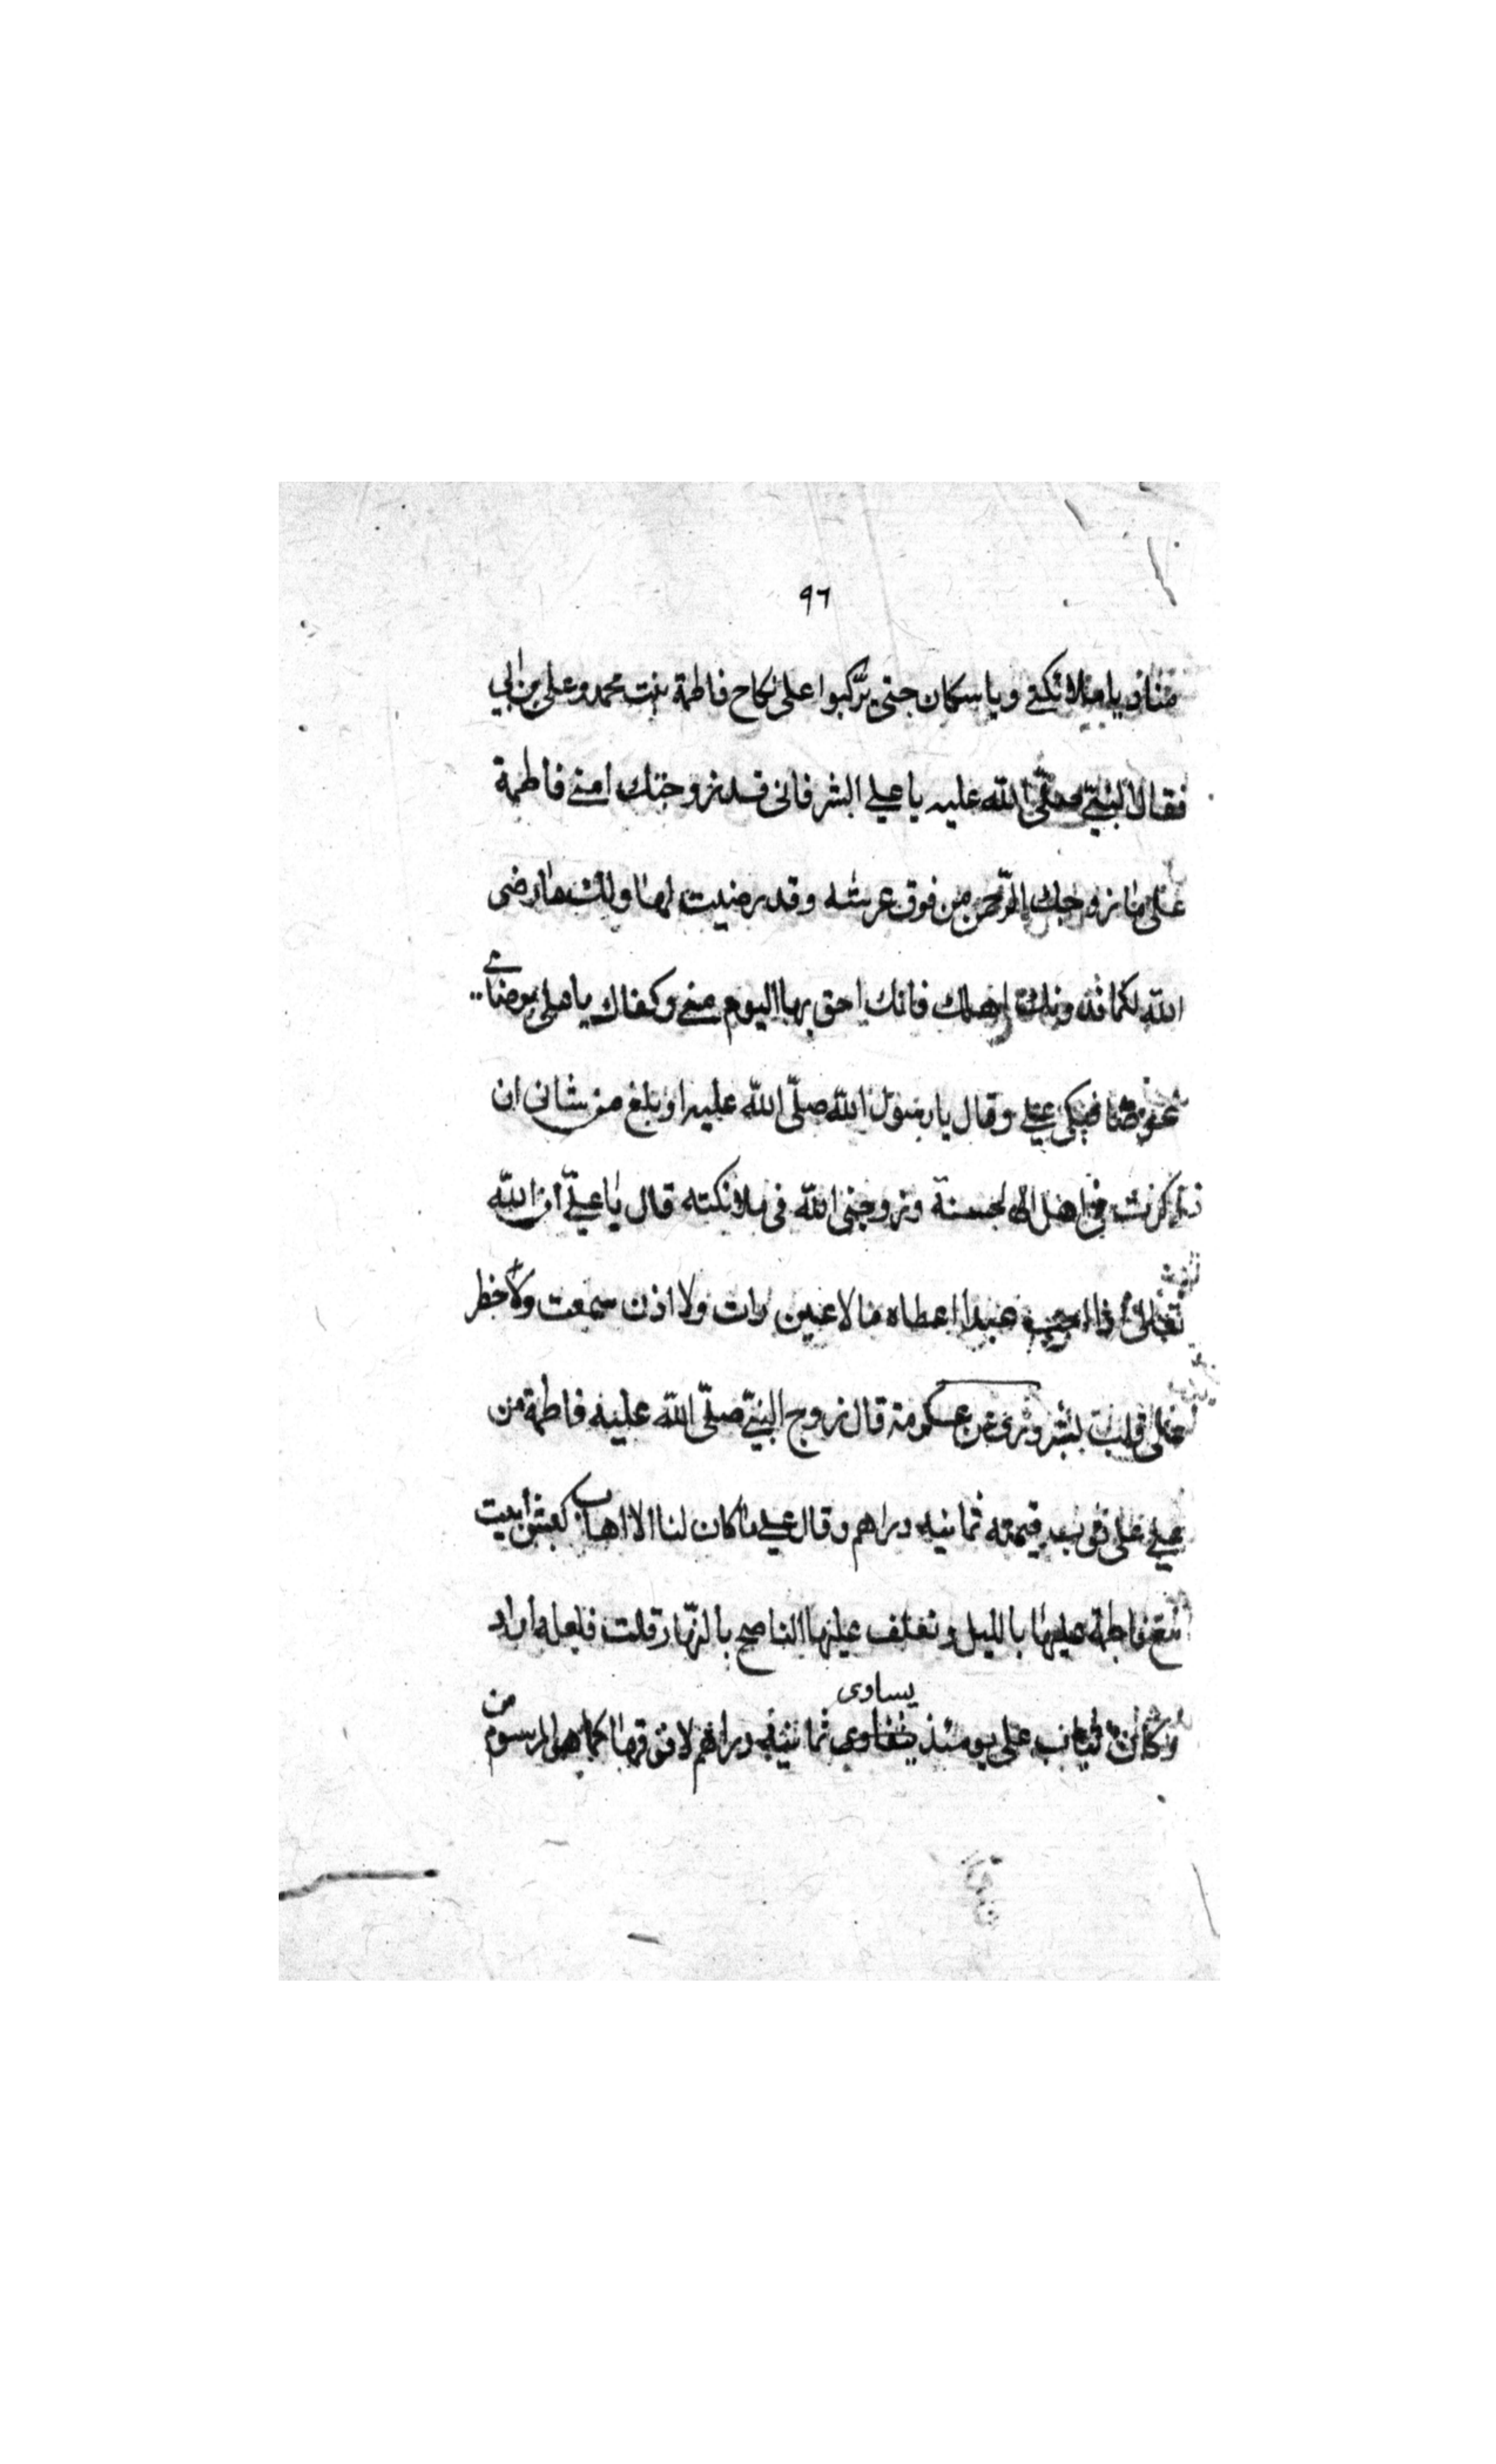 ٩٦
مناد يا ملائكتي ويا سكان جنتي بركبوا على نكاح فاطمة بنت محمد وعلى بن ابي
فقال النبيّ صلّى اللّه عليه يا علي ابشر فانى قد زوجتك ابنتي فاطمة
على ما زوجك الرّحمن من فوق عرشه وقد رضيت لها ولك ما رضى
اللّه لكما فدونك اهلك فانك احق بها اليوم منى وكفاك يا على برضاى
فبكى علي وقال يا رسول اللّه صلّى اللّه عليه او بلغ من شانى ان
ذكرت في اهل الجنة وزوجنى اللّه فى ملائكته قال يا عليّ ان اللّه
تعالى اذا احب عبدا اعطاه ما لا عين رات ولا اذن سمعت ولا خطر
على قلب بشر وروى عن عكرمة قال زوج النبيّ صلّى اللّه عليه فاطمة من
علي على ثوب قيمته ثمانية دراهم وقال علي ما كان لنا الا اهاب كبش ابيت
مع فاطمة عليها بالليل ونعلف عليها الناضح بالنّهار قلت فلعله اراد
وكان ثياب على يومئذ يساوى ثمانية دراهم لا من كما هو المرسوم من